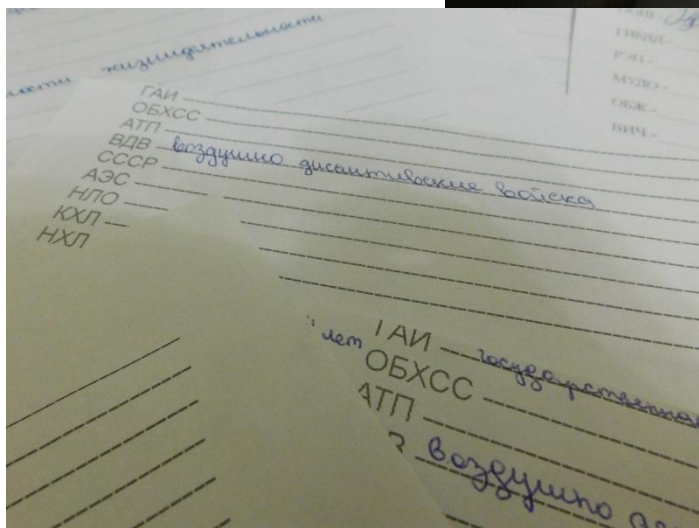 жизнидеятельности
ГИБДД -
МУДО -
ОБЖ -
ВИЧ -
ГАИ
ОБХСС
АТП
ВДВ воздушно дисантивские войска
СССР
АЭС
НЛО
КХЛ
НХЛ
лет
ГАИ государственная
ОБХСС
АТП
В воздушно